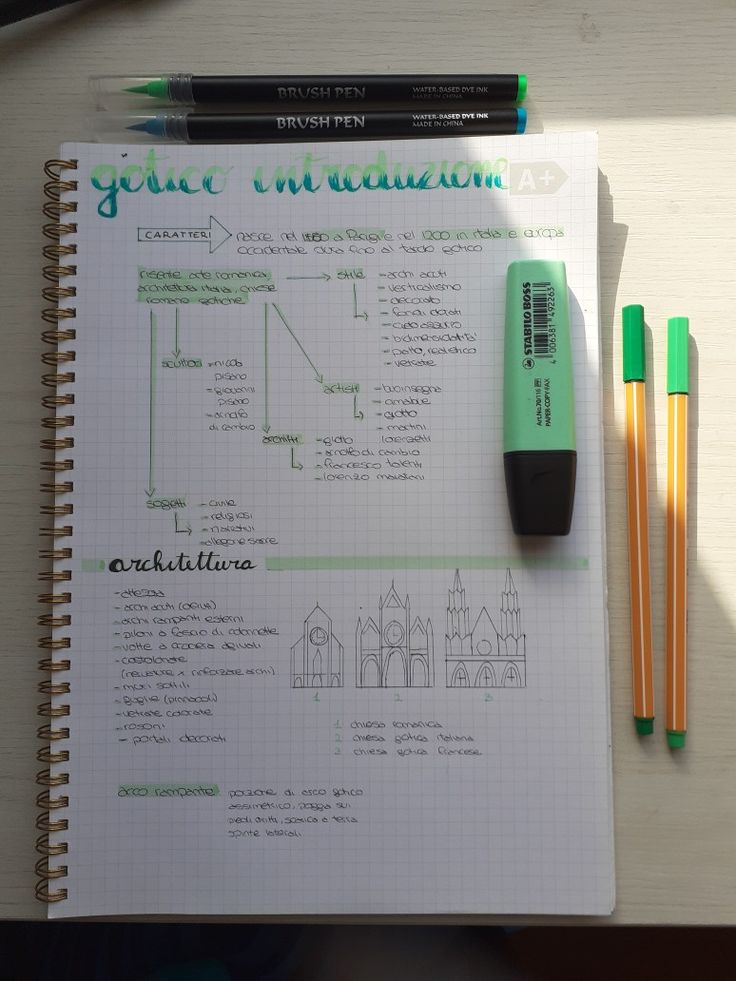 BRUSH PEN WATER-BASED DYE INK
MADE IN CHINA
BRUSH PEN WATER-BASED DYE INK
MADE IN CHINA
gotico introduzione A+
CARATTERI
nasce nel a Parigi e nel 1200 in italia e europa
occidentale dura fino al tardo gotico
risente arte romanica,
architettura italia, chiese
romano gotiche
stile
- archi acuti
- verticalismo
- decorato
- fondi dorati
- cielo azzurro
- bidimensionalità
- piatto, realistico
- vetrate
scultori
- nicola
pisano
- giovanni
pisano
- arnolfo
di cambio
artisti
- buoninsegna
- cimabue
- giotto
- martini
lorenzetti
architti
- giotto
- arnolfo di cambio
- francesco talenti
- lorenzo maitani
sogetti
- civile
- religiosi
- narrativi
- allegorie sacre
STABILO BOSS
4 006381 492263
Art.No.70/116
PAPER-COPY-FAX
architettura
- altezza
- archi acuti (ogiva)
- archi rampanti esterni
- piloni a fascio di colonnette
- volte a crociera ogivali
- costolonate
(nervature x rinforzare archi)
- muri sottili
- guglie (pinnacoli)
- vetrate colorate
- rosoni
- portali decorati
1 2 3
1 chiesa romanica
2 chiesa gotica italiana
3 chiesa gotica francese
arco rampante: porzione di arco gotico
assimetrico, poggia sui
piedi dritti, scarica a terra
spinte laterali